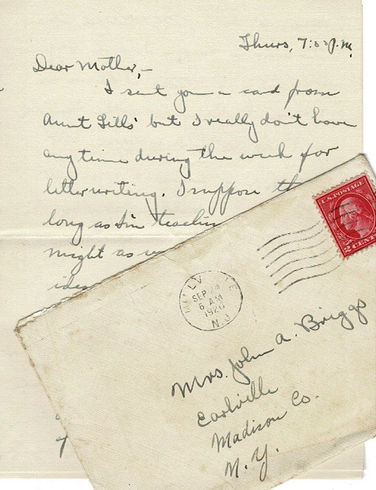 Thurs, 7:00 P.M.
Dear Mother,-
I sent you a card from
Aunt Lill's but I really don't have
any time during the week for
letter writing. I suppose
long as I'm
might as
U.S. POSTAGE
2 CENTS 2
SEP
6 AM
1920
N.J.
Mrs. John A. Briggs
Earlville
Madison Co.
N.Y.